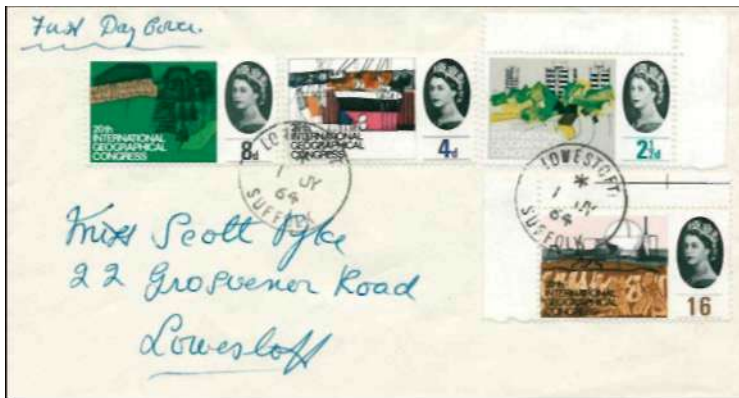 First Day Cover.
20th
INTERNATIONAL
GEOGRAPHICAL
CONGRESS
8d
20th
INTERNATIONAL
GEOGRAPHICAL
CONGRESS
4d
2½d
LOWESTOFT
1 JY
64
SUFFOLK
LOWESTOFT
*
1 JY
64
SUFFOLK
20th
INTERNATIONAL
GEOGRAPHICAL
CONGRESS
16
Miss Scott Pyke
22 Grosvenor Road
Lowestoft